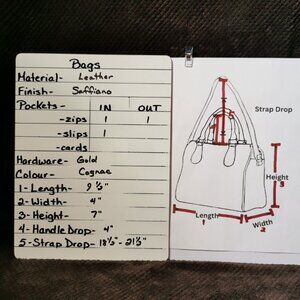 Bags
Material- Leather
Finish- Saffiano
Pockets- IN OUT
-zips 1 1
-slips 1
-cards
Hardware- Gold
Colour- Cognac
1-Length- 9 ½"
2-Width- 4"
3-Height- 7"
4-Handle Drop- 4"
5-Strap Drop- 18½"-21½"
Strap Drop
Height
3
Length
1
Width
2